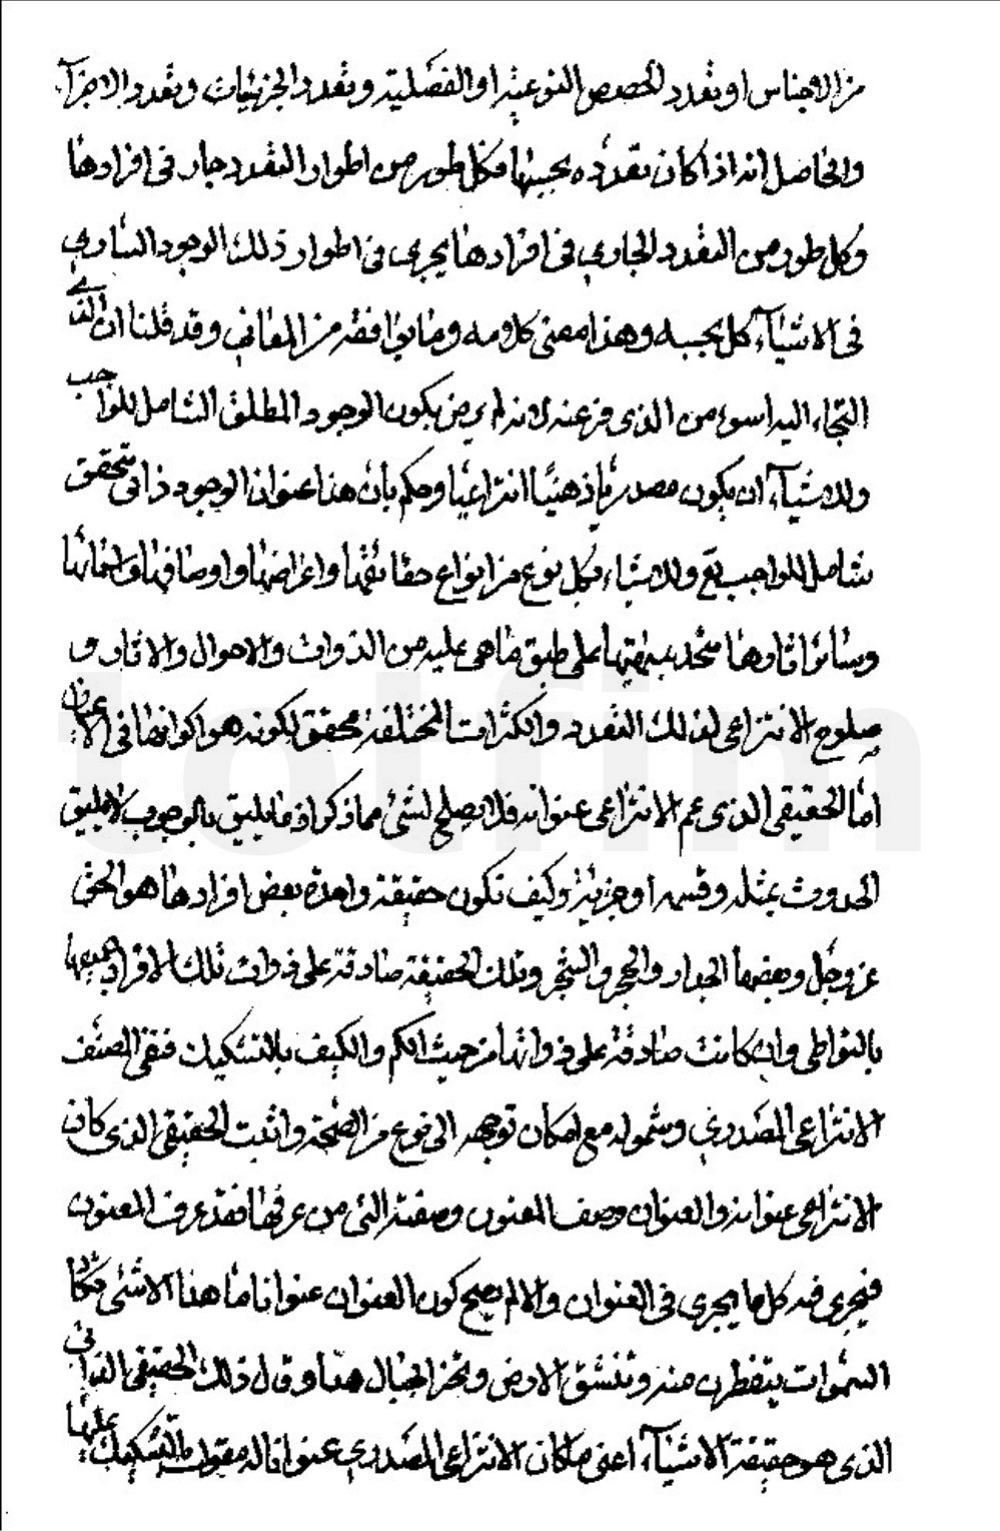 من الاجناس او تعدد الحصص النوعية او الفصلية و تعدد الجزئيات و تعدد الاجزآء
والحاصل انه اذا كان تعدده بحسبها فكل طور من اطوار التعدد جار في افرادها
وكل طور من التعدد الجاري في افرادها يجري في اطوار ذلك الوجود الساري
في الاشيآء كل بحسبه وهذا معنى كلامه وما يوافقه من المعاني وقد قلنا ان الذي
التجاء اليه اسوء من الذي فر عنه لانه لم يرض بكون الوجود المطلق الشامل للواجب
وللاشيآء ان يكون مصدريا ذهنيا انتزاعيا وحكم بان هذا عنوان الوجود ذاتي متحقق
شامل للواجب تع وللاشياء فكل نوع من انواع حقائقها واعراضها واوصافها واضافاتها
وسائر اثارها متحد بماهيتها على طبق ما هي عليه من الذوات والاحوال والاثار و
صلوح الانتزاعي لذلك التعدد والكثرات المختلفة محقق لكونه هو اكوانها في الاعيان
اما الحقيقي الذي عم الانتزاعي عنوانه فلا يصلح لشئ مما ذكر اذ ما يليق بالوجوب لا يليق
الحدوث بمثله وقسمه او جزئيه وكيف تكون حقيقة واحدة بعض افرادها هو الحق
عز وجل وبعضها الجدار والحجر والشجر وتلك الحقيقة صادقة على ذوات تلك الافراد جميعها
بالتواطي وان كانت صادقة على ذواتها من حيث الكم والكيف بالتشكيك فنفى المصنف
الانتزاعي المصدري وشموله مع امكان توجهه الى نوع من الصحة واثبت الحقيقي الذي كان
الانتزاعي عنوانه والعنوان وصف المعنون وصفته التي من عرفها فقد عرف المعنون
فيجري فيه كل ما يجري في العنوان والا لم يصح كون العنوان عنوانا ما هذا الا شئ تكاد
السموات يتفطرن منه وتنشق الارض وتخر الجبال هدا وقال ذلك الحقيقي الذاتي
الذي هو حقيقة الاشيآء اعني ما كان الانتزاعي المصدري عنوانا له مقول بالتشكيك عليها